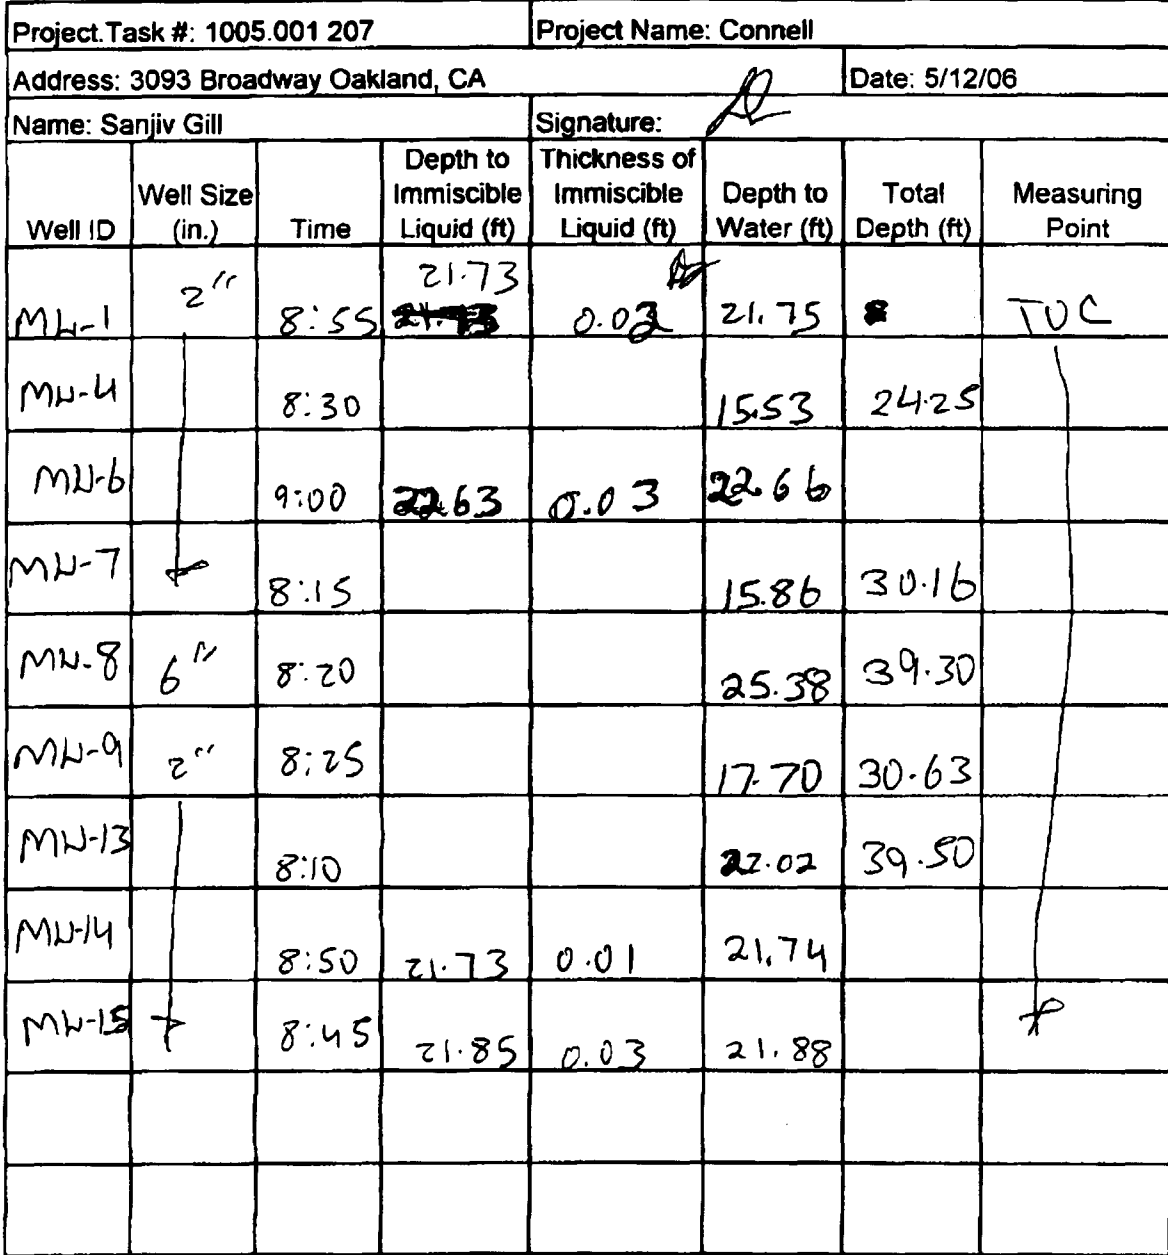 Project.Task #: 1005.001 207 Project Name: Connell
Address: 3093 Broadway Oakland, CA Date: 5/12/06
Name: Sanjiv Gill Signature:
Well ID Well Size (in.) Time Depth to Immiscible Liquid (ft) Thickness of Immiscible Liquid (ft) Depth to Water (ft) Total Depth (ft) Measuring Point
21.73
MW-1 2" 8:55 0.02 21.75 TOC
MW-4 8:30 15.53 24.25
MW-6 9:00 22.63 0.03 22.66
MW-7 8:15 15.86 30.16
MW-8 6" 8:20 25.38 39.30
MW-9 2" 8:25 17.70 30.63
MW-13 8:10 22.02 39.50
MW-14 8:50 21.73 0.01 21.74
MW-15 8:45 21.85 0.03 21.88